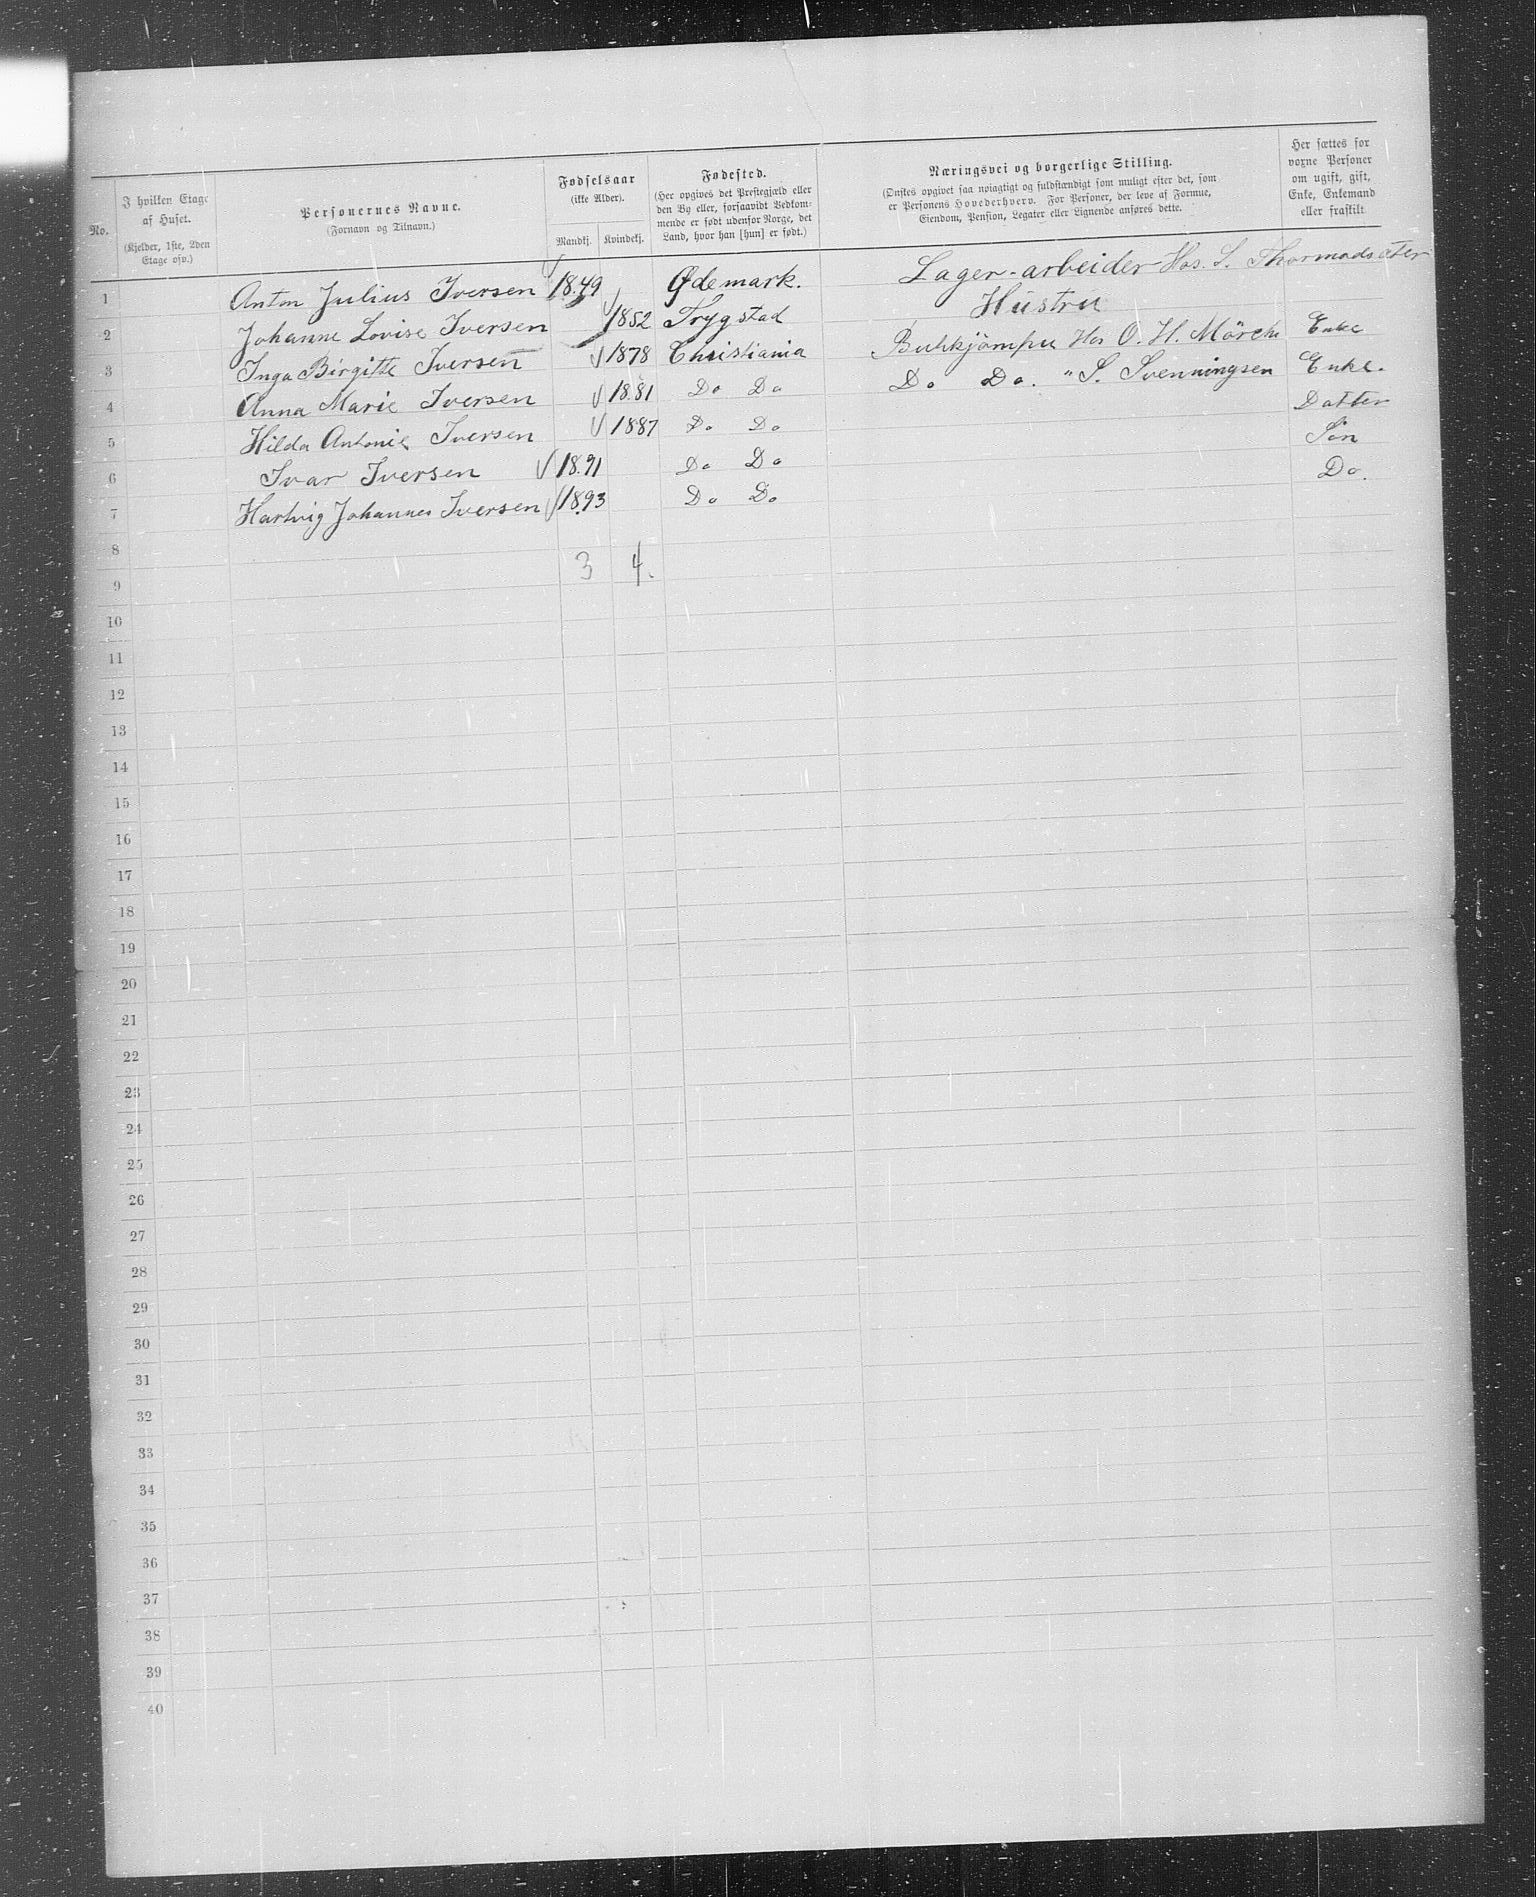 No.
I hvilken Etage af Huset. (Kjelder, 1ste, 2den Etage osv.)
Personernes Navne. (Fornavn og Tilnavn.)
Fødselsaar (ikke Alder). Mandkj. Kvindekj.
Fødested. (Her opgives det Prestegjæld eller den By eller, forsaavidt Vedkommende er født udenfor Norge, det Land, hvor han [hun] er født.)
Næringsvei og borgerlige Stilling. (Ønskes opgivet saa nøiagtigt og fuldstændigt som muligt efter det, som er Personens Hovederhverv. For Personer, der leve af Formue, Eiendom, Pension, Legater eller Lignende anføres dette.
Her sættes for voxne Personer om ugift, gift, Enke, Enkemand eller fraskilt
1 Anton Julius Iversen 1849 Ødemark. Lager-arbeider Hos. S. Thormodsæter
2 Johanne Lovise Iversen 1852 Trygstad Hustru
3 Inga Birgitte Iversen 1878 Christiania Hos O. H. Mörch Enke
4 Anna Marie Iversen 1881 Do Do Do Do. " S. Svenningsen Enke.
5 Hilda Antonie Iversen 1887 Do Do Datter
6 Ivar Iversen 1891 Do Do Sön
7 Hartvig Johannes Iversen 1893 Do Do Do.
8
3 4.
9
10
11
12
13
14
15
16
17
18
19
20
21
22
23
24
25
26
27
28
29
30
31
32
33
34
35
36
37
38
39
40